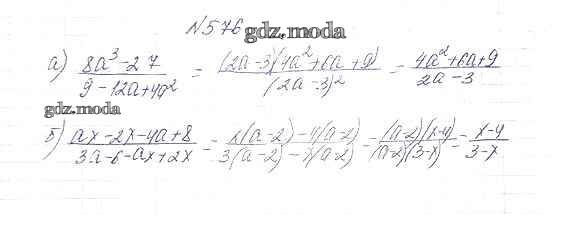 №576 gdz.moda
а) (8a³-27)/(9-12a+4a²) = ((2a-3)(4a²+6a+9))/((2a-3)²) = (4a²+6a+9)/(2a-3)
gdz.moda
б) (ax-2x-4a+8)/(3a-6-ax+2x) = (x(a-2)-4(a-2))/(3(a-2)-x(a-2)) = ((a-2)(x-4))/((a-2)(3-x)) = (x-4)/(3-x)